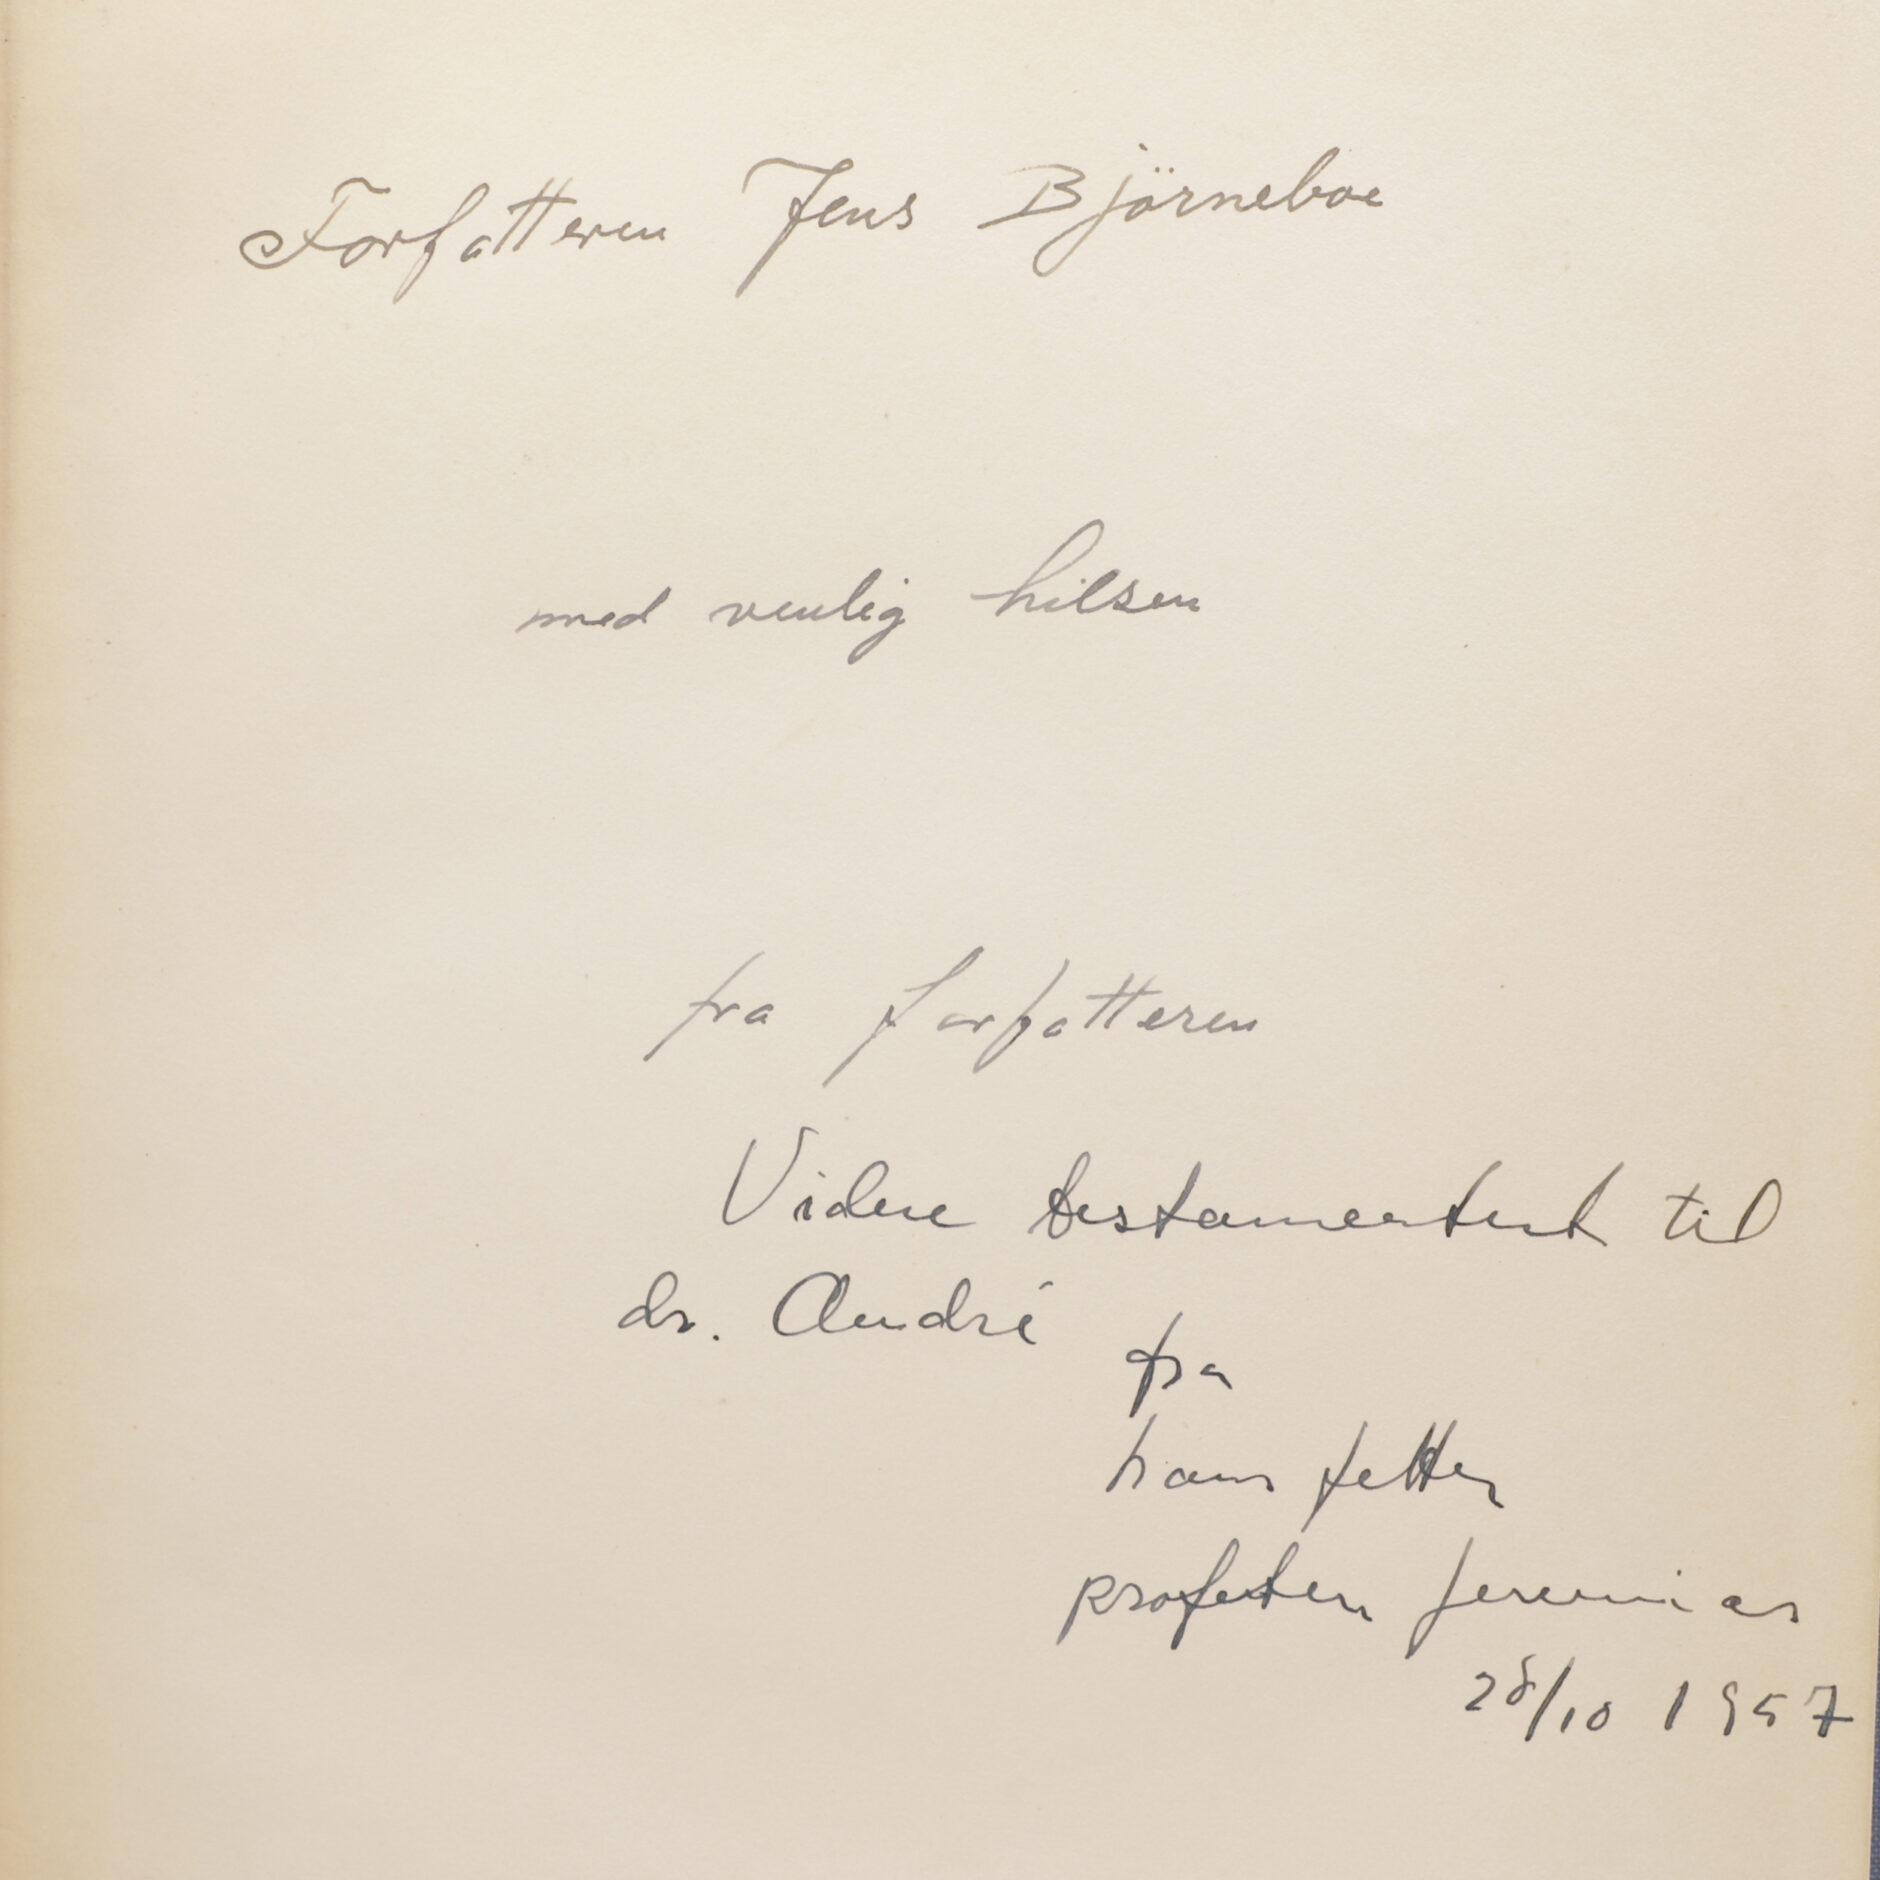 Forfatteren Jens Björneboe
med venlig hilsen
fra forfatteren
Videre testamentert til
dr. André
fra
hans fetter
profeten Jeremias
28/10 1957